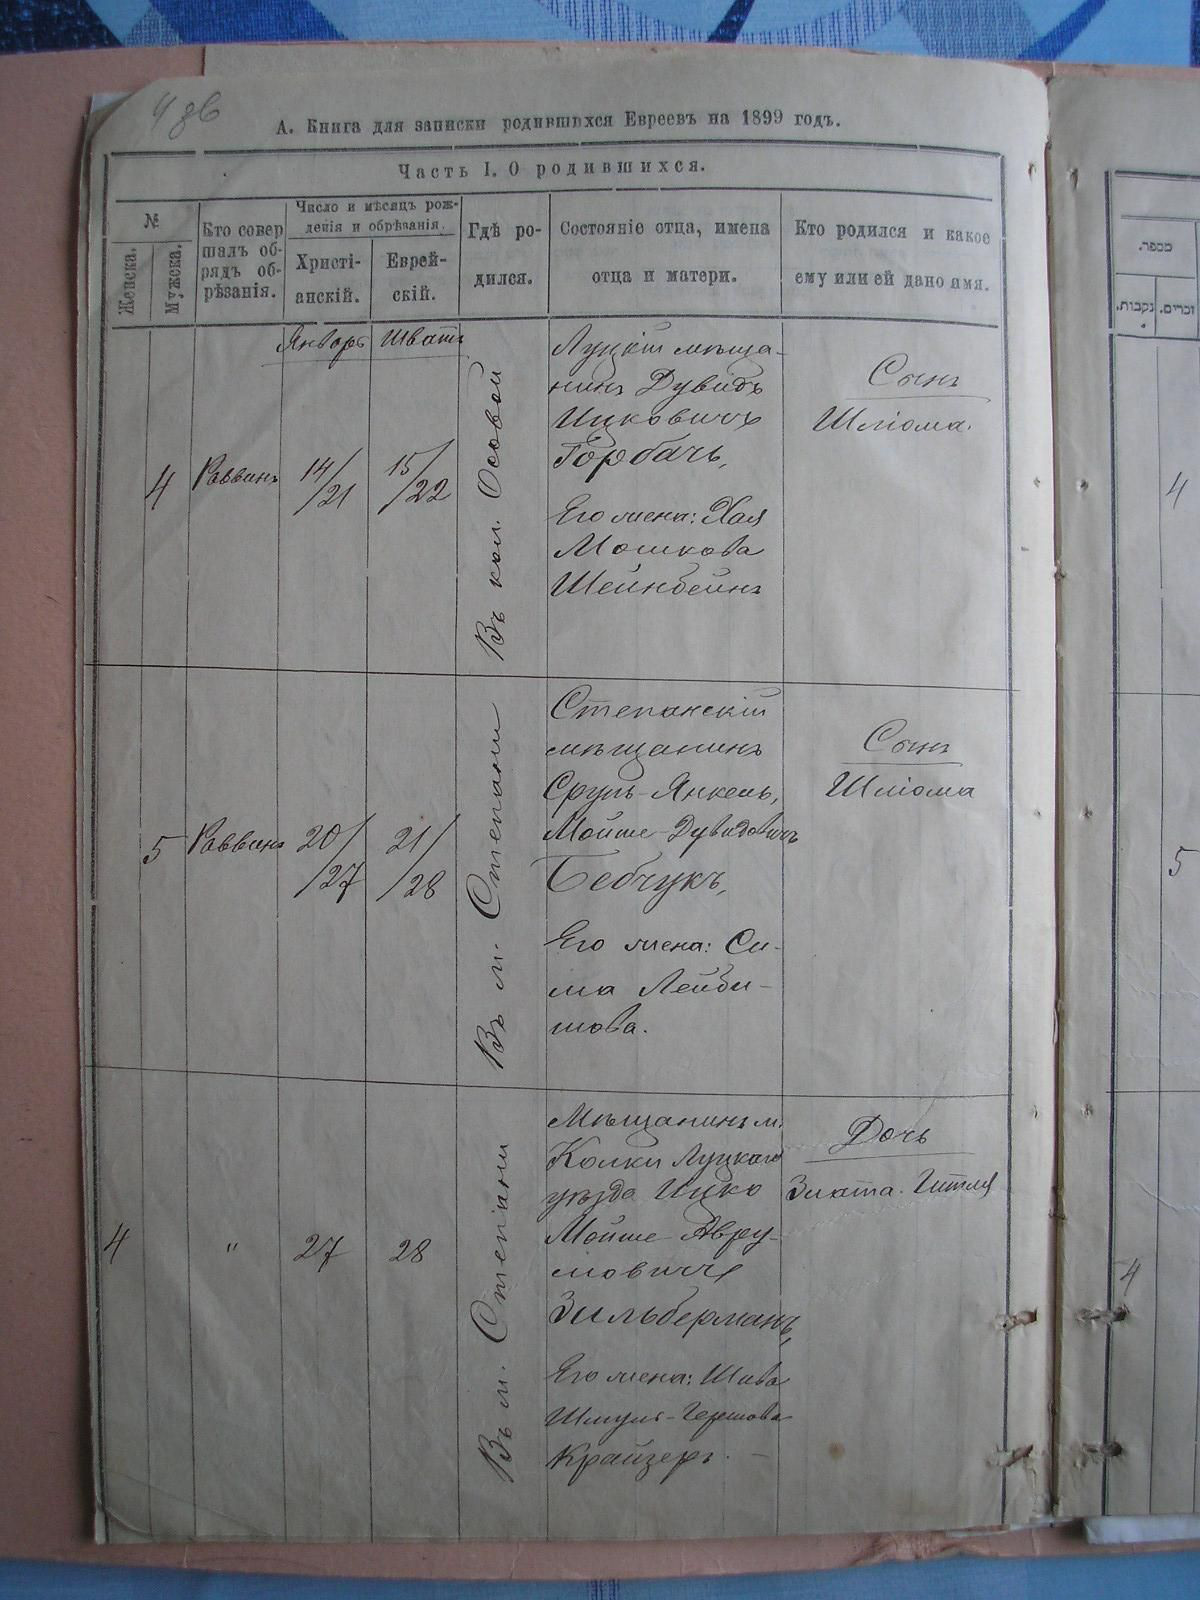 4 зв
А. Книга для записки родившихся Евреевъ на 1899 годъ.
Часть I. О родившихся.
№
Женска.
Мужска.
Кто совер
шалъ об-
рядъ об-
рѣзанія.
Число и мѣсяцъ рож-
денія и обрѣзанія.
Христі-
анскій.
Еврей-
скій.
Гдѣ ро-
дился.
Состояніе отца, имена
отца и матери.
Кто родился и какое
ему или ей дано имя.
Январь
Шватъ
4
Раввинъ
14/
/21
15/
/22
Въ кол. Осовой
Луцкій мѣща-
нинъ Дувидъ
Ицковичъ
Горбачъ,
Его жена: Хая
Мошкова
Шейнбейнъ
Сынъ
Шліома.
5
Раввинъ
20/
/27
21/
/28
Въ м. Степани
Степанскій
мѣщанинъ
Сруль-Янкель,
Мойше-Дувидовичъ
Бебчукъ,
Его жена: Си-
ма Лейби-
шова.
Сынъ
Шліома
4
"
27
28
Въ м. Степани
Мѣщанинъ м.
Колки Луцкаго
уѣзда Ицко
Мойше Авру-
мовичъ
Зильберманъ,
Его жена: Шива
Шмуль-Гершова
Крайзеръ. –
Дочь
Злата-Гитля
מספר.
נקבות.
זכרים.
4
5
4